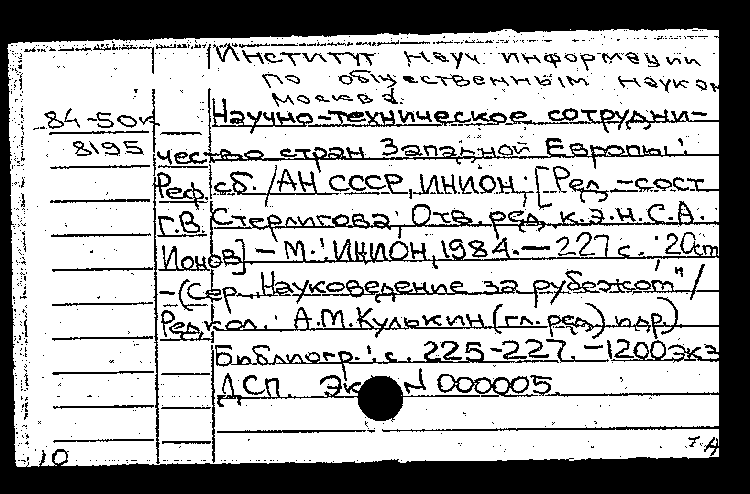 Институт науч информации
по общественным наукам
Москва.
84-50к Научно-техническое сотрудни-
8195 чество стран Западной Европы:
Реф. сб. / АН СССР, ИНИОН; [Ред.-сост
Г.В. Стерлигова; Отв. ред. к.э.н. С.А.
Ионов] - М.: ИНИОН, 1984. - 227 с.; 20 cm
- (Сер. "Науковедение за рубежом" /
Редкол.: А.М. Кулькин (гл. ред) и др.).
Библиогр.: с. 225-227. - 1200 экз
ДСП. Экз N 000005.
10